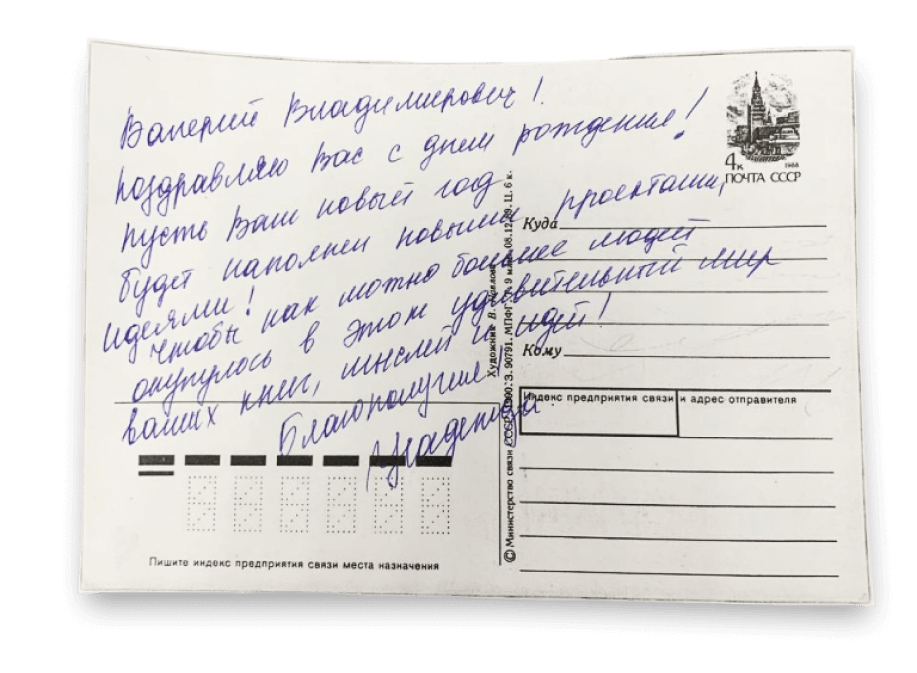 Валерий Владимирович!
поздравляю Вас с днем рождения!
пусть Ваш новый год
будет наполнен новыми проектами,
идеями!
Чтобы как можно больше людей
окунулось в этот удивительный мир
ваших книг, мыслей и идей!
Благополучие
4к
1988
ПОЧТА СССР
Куда
Кому
Индекс предприятия связи и адрес отправителя
Пишите индекс предприятия связи места назначения
© Министерство связи СССР
Художник В.
З. 90791. МПФГ
08.12.89. Ц. 6 к.